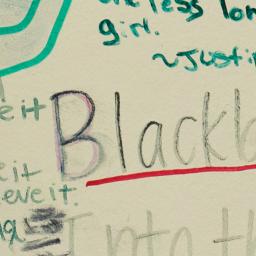 one less lon
girl.
~Justi
e it
Blackb
e it
eve it.
Into th